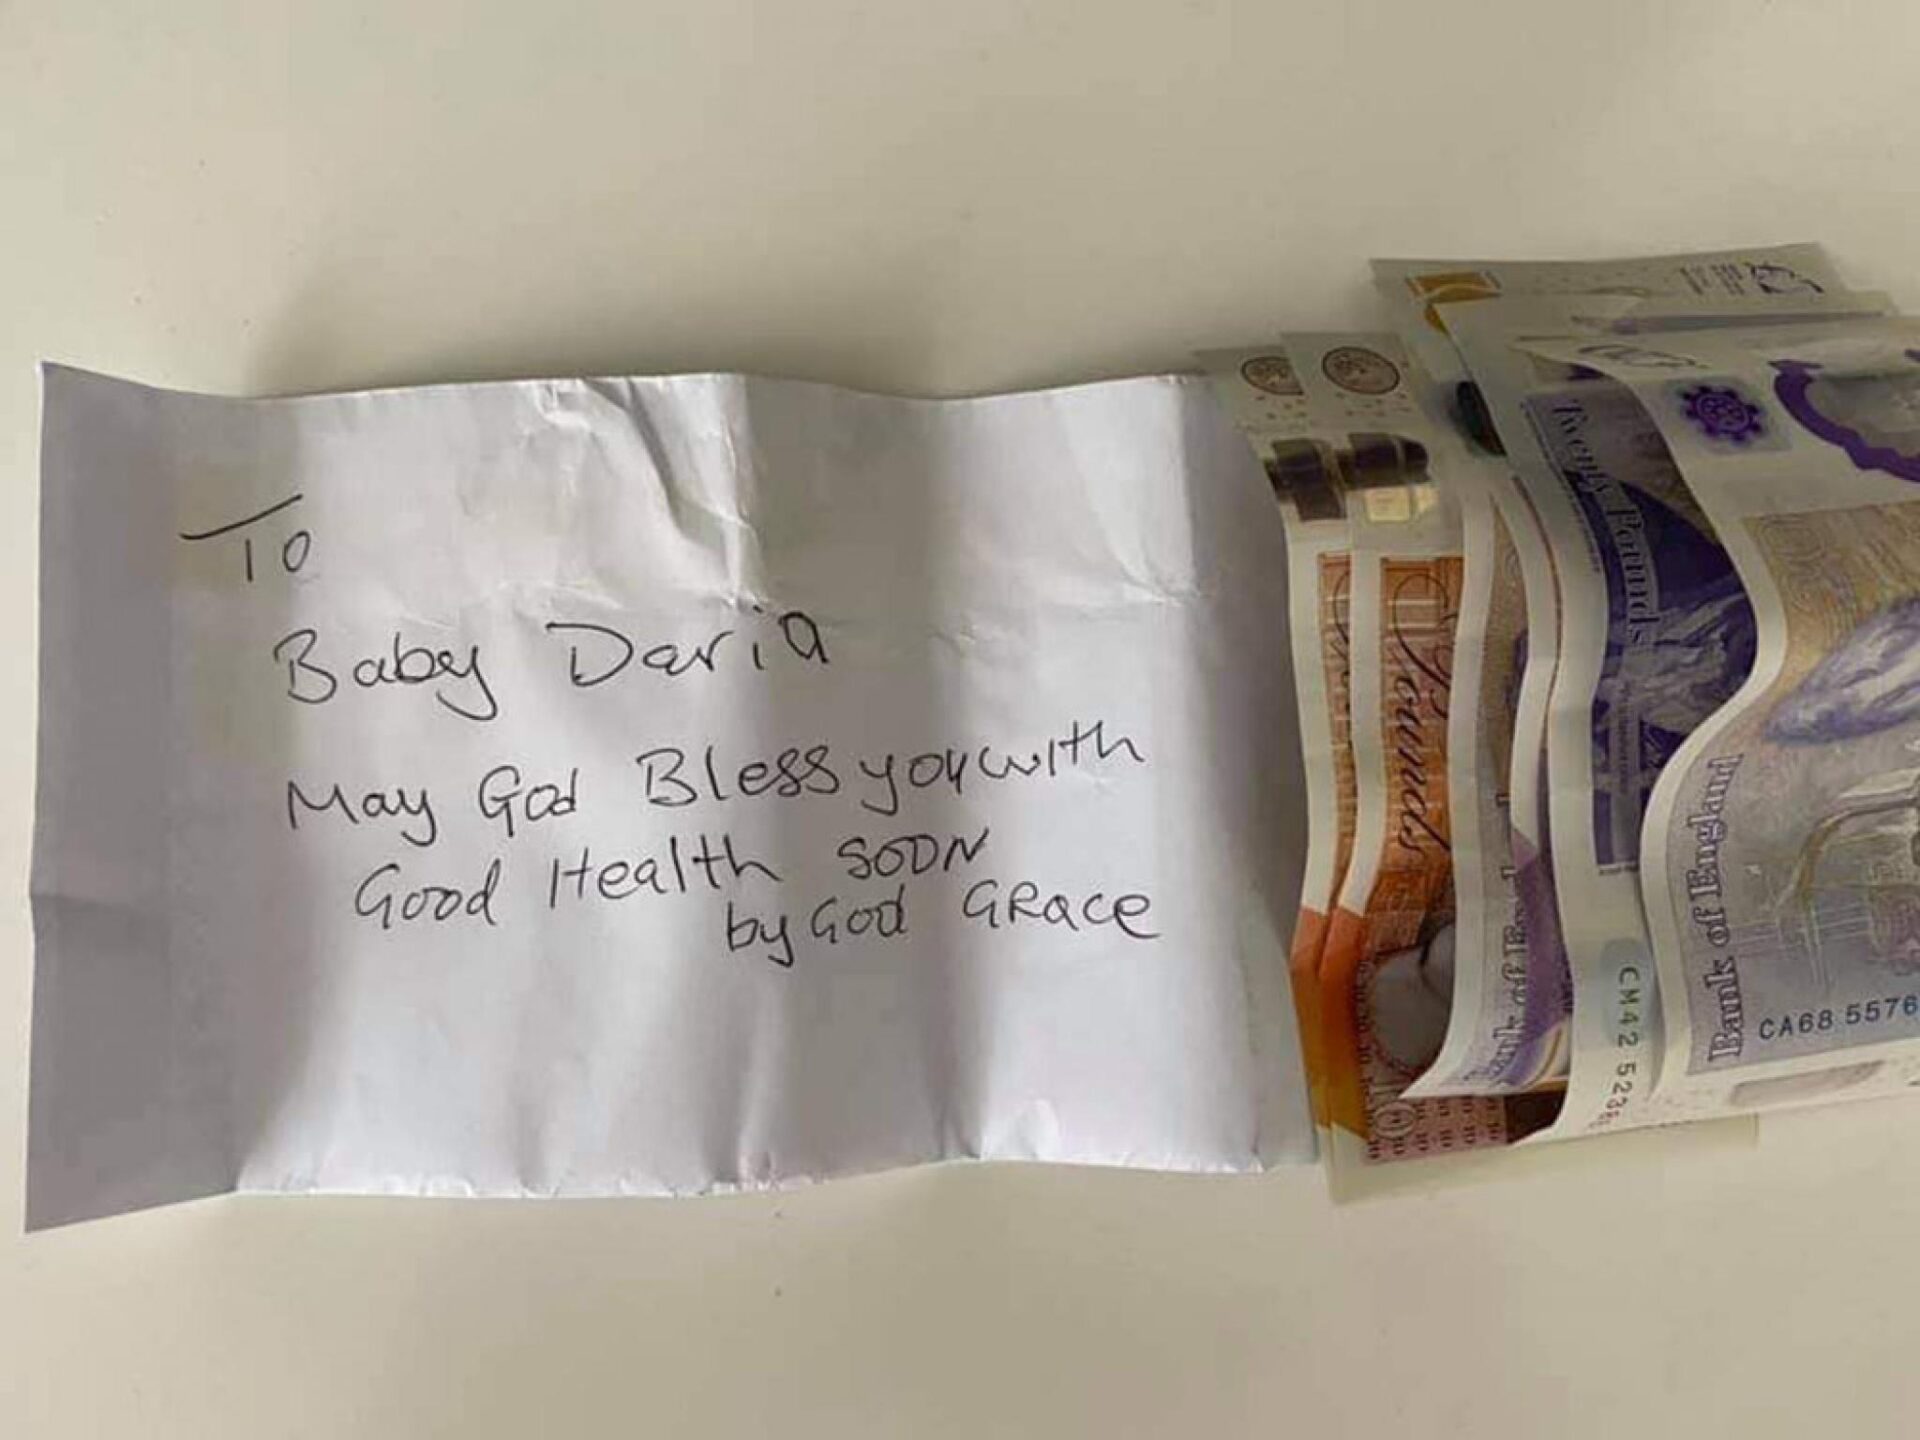 To
Baby Daria
May God Bless you with
Good Health soon
by God GRace
Twenty Pounds
Pounds
Bank of England
CM42 5238
Bank of England
CA68 5576